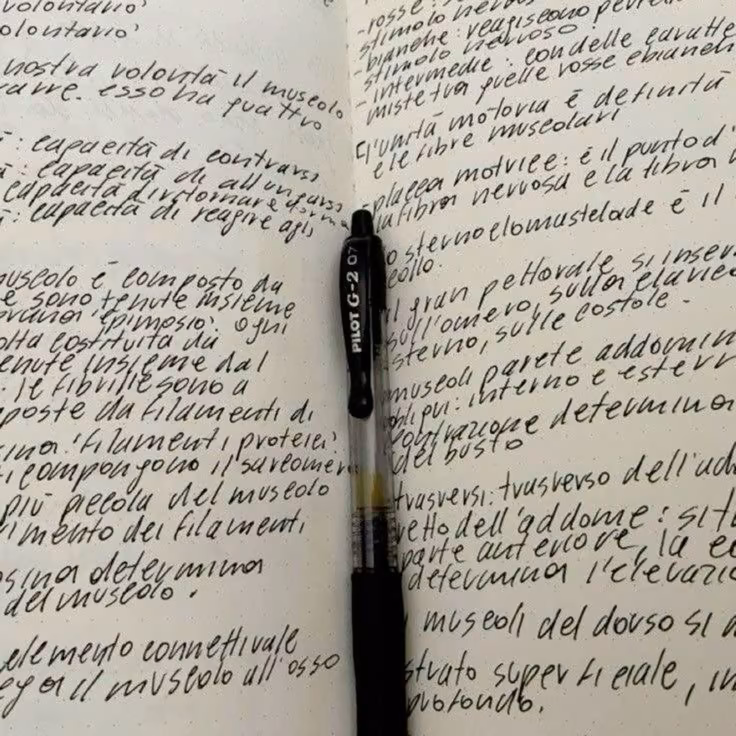 volontario'
volontario'
nostra volontà il muscolo
esso ha quattro
: capacità di contrarsi
: capacità di allungarsi
capacità di ritornare
: capacità di reagire agli
muscolo è composto da
e sono tenute insieme
epimisio. ogni
costituita da
tenute insieme dal
. le fibrille sono a
poste da filamenti di
'filamenti proteici'
compongono il sarcomero
più piccola del muscolo
dei filamenti
determina
del muscolo.
elemento connettivale
il muscolo all'osso
PILOT G-2 07
- rosse:
stimolo nervoso
- bianche: reagiscono
stimolo nervoso
- intermedie: con delle
miste tra quelle rosse e bianche
l'unità motoria è definita
e le fibre muscolari
placca motrice: è il punto d'
la fibra nervosa e la fibra
lo sternocleomastelade è il
collo.
il gran pettorale si
sull'omero, sulla
sterno, sulle costole.
muscoli parete
: interno e
contrazione determina
del busto
trasversi: trasverso dell'
retto dell'addome:
parte anteriore, la
determina
muscoli del dorso si
strato superficiale,
profondo.